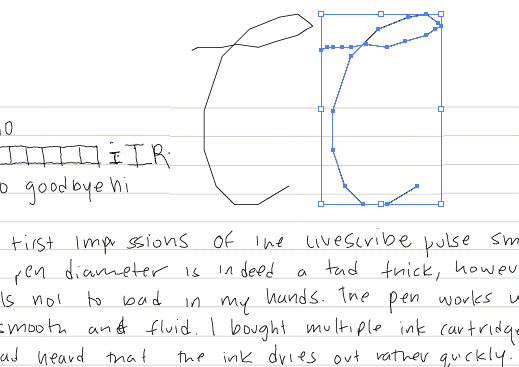 iIR
goodbye hi
first impressions of the livescribe pulse
pen diameter is indeed a tad thick,
is not to bad in my hands. The pen works
smooth and fluid. I bought multiple ink
heard that the ink dries out rather quickly.